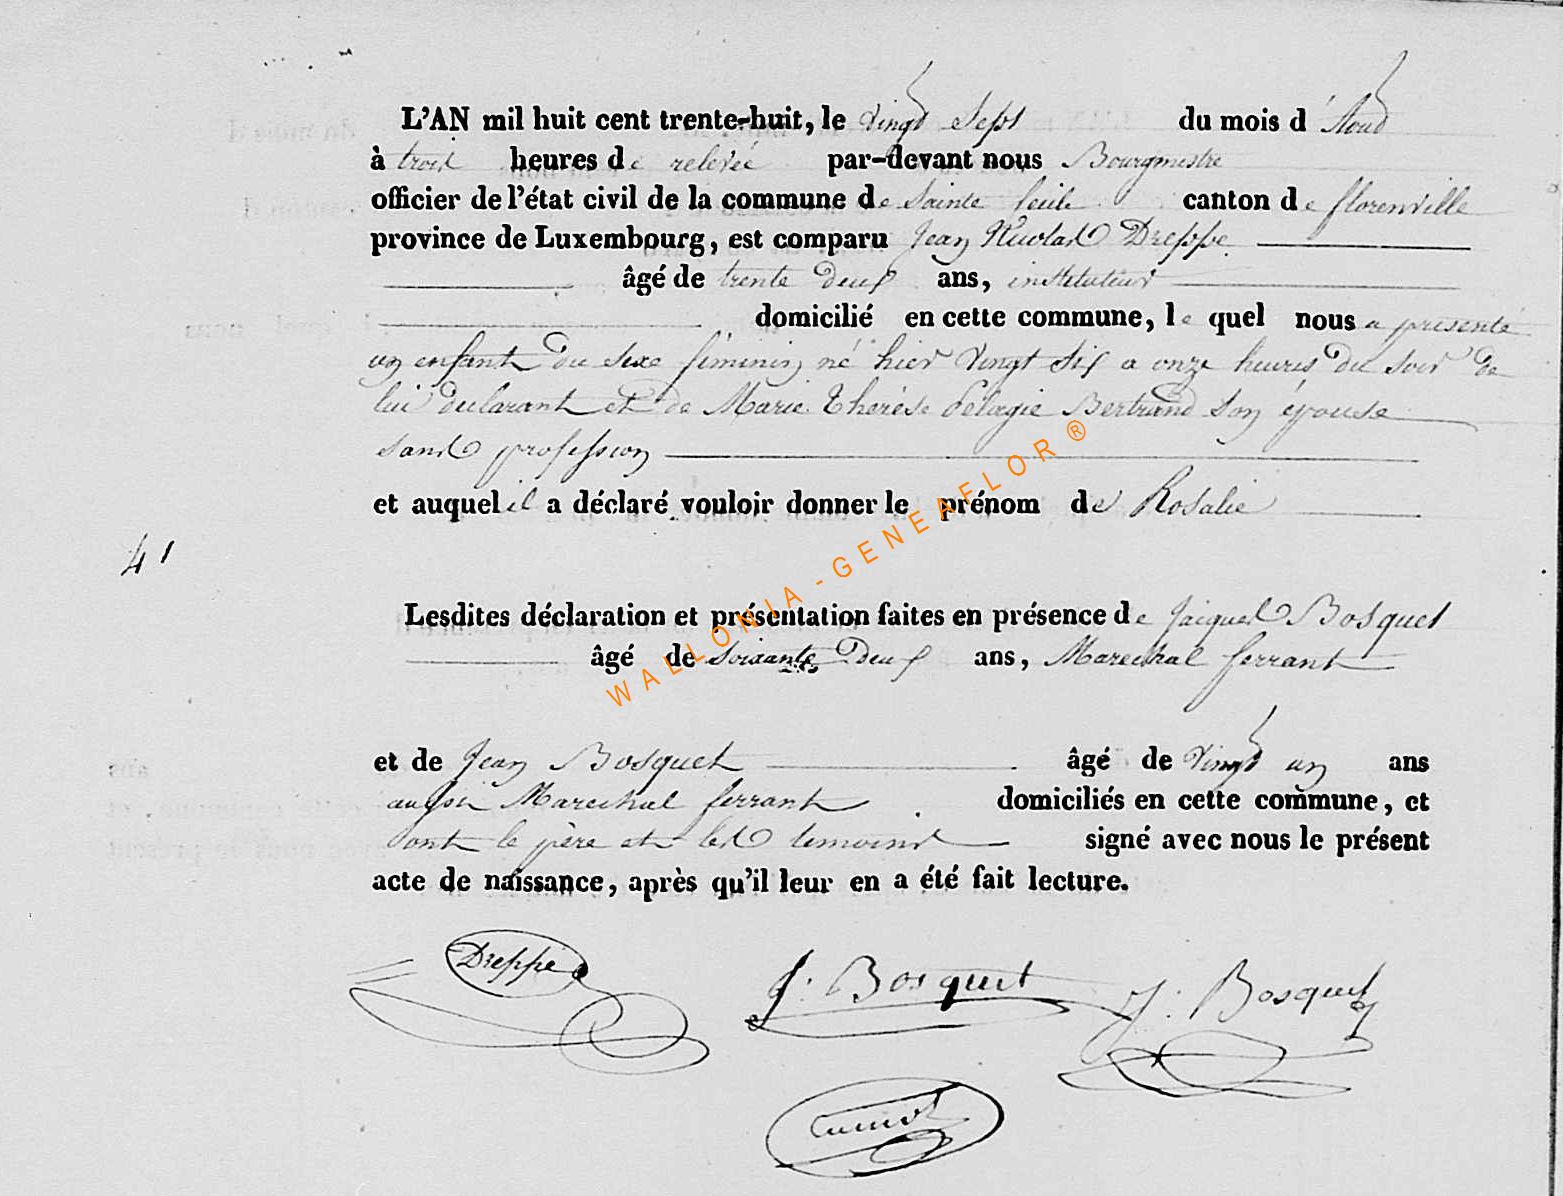 L'AN mil huit cent trente-huit, le vingt sept du mois d'Aoud
à trois heures de relevée par-devant nous Bourgmestre
officier de l'état civil de la commune de Sainte Cecile canton de florenville
province de Luxembourg, est comparu Jean Nicolas Dreppe
âgé de trente deux ans, instituteur
domicilié en cette commune, le quel nous a présenté
un enfant du sexe féminin né hier vingt six a onze heures du soir de
lui declarant et de Marie Thérèse Pélagie Bertrand son épouse
sans profession
et auquel il a déclaré vouloir donner le prénom de Rosalie
41
Lesdites déclaration et présentation faites en présence de Jacques Bosquet
âgé de soixante deux ans, Marechal ferrant
et de Jean Bosquet âgé de vingt un ans
aussi Marechal ferrant domiciliés en cette commune, et
ont le père et les temoins signé avec nous le présent
acte de naissance, après qu'il leur en a été fait lecture.
Dreppe J. Bosquet J. Bosquet
WALLONIA - GENEAFLOR ®